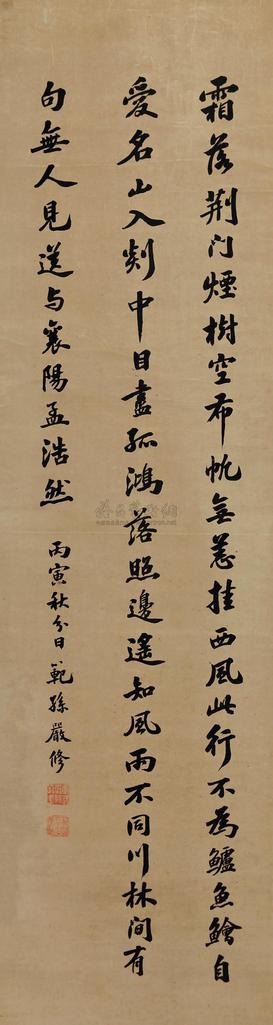 霜落荆门煙樹空布帆無恙挂西風此行不為鱸魚鱠自
愛名山入剡中目盡孤鴻落照邊遙知風雨不同川林間有
句無人見送与襄陽孟浩然
丙寅秋分日範孫嚴修